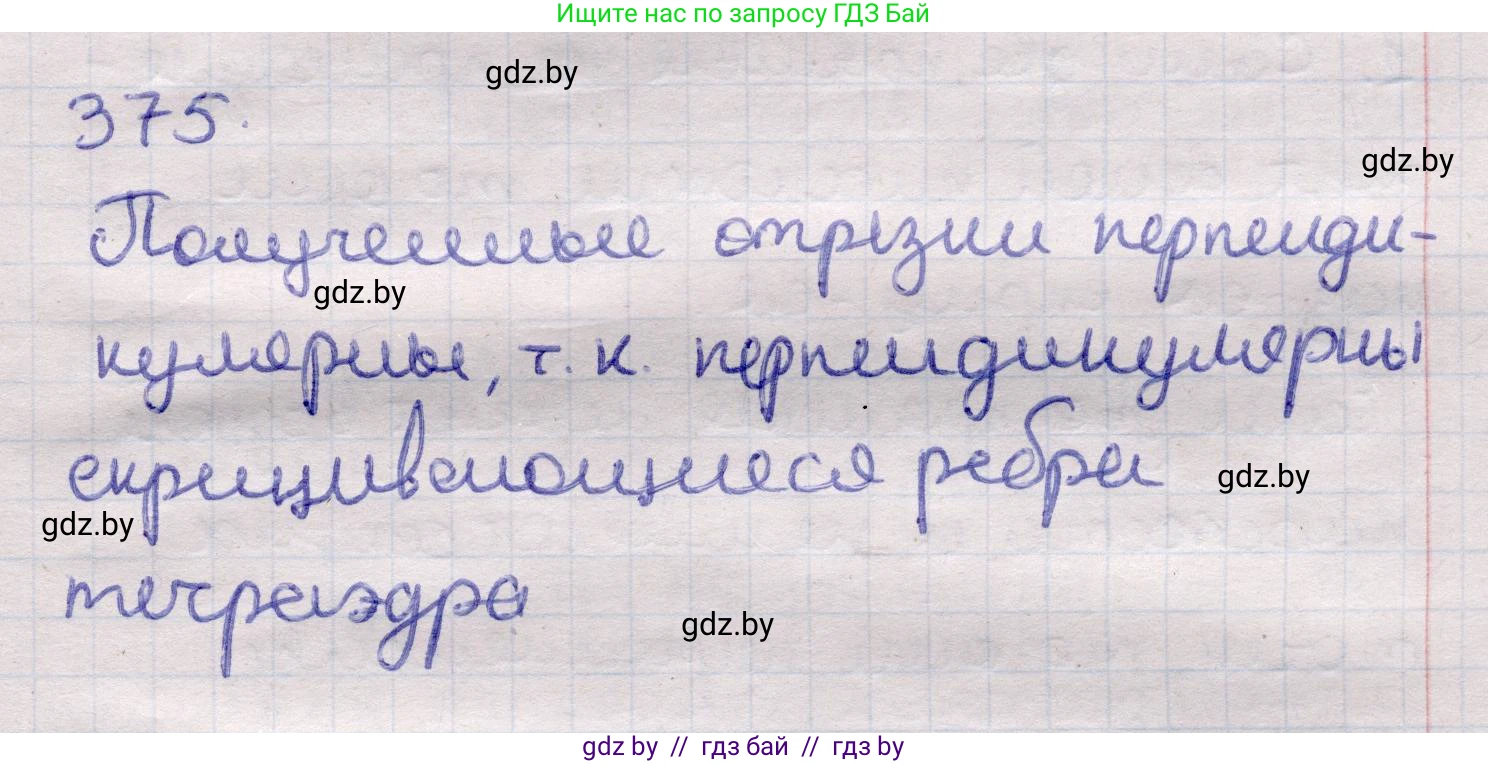 Ищите нас по запросу ГДЗ Бай
gdz.by
375.
gdz.by
Полученные отрезки перпенди-
gdz.by
кулярны, т. к. перпендикулярны
скрещивающиеся ребра
gdz.by
gdz.by
тетраэдра
gdz.by
gdz by // гдз бай // гдз by